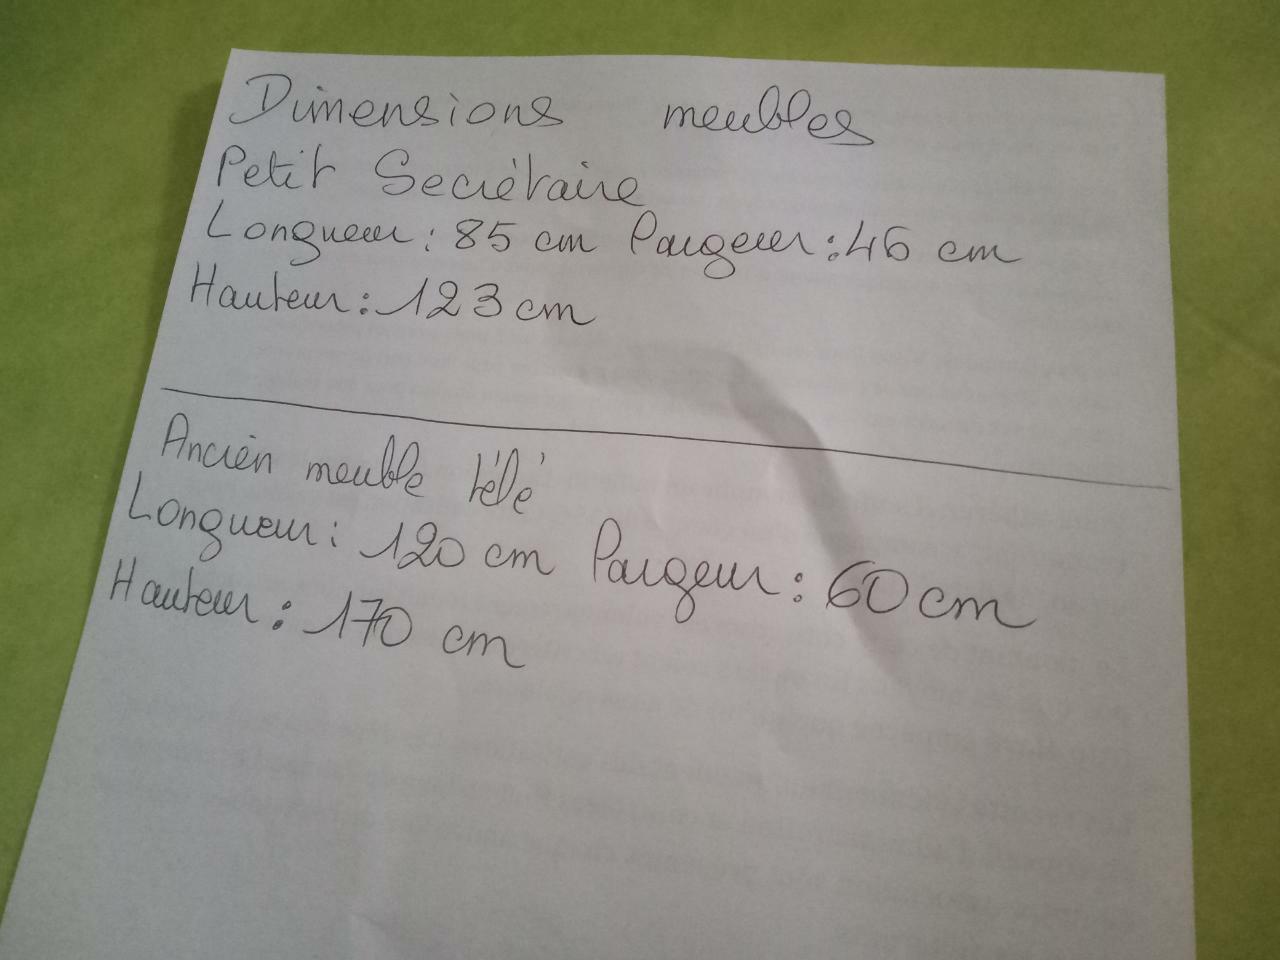 Dimensions meubles
Petit Secrétaire
Longueur : 85 cm largeur : 46 cm
Hauteur : 123 cm
Ancien meuble télé
Longueur : 120 cm largeur : 60 cm
Hauteur : 170 cm